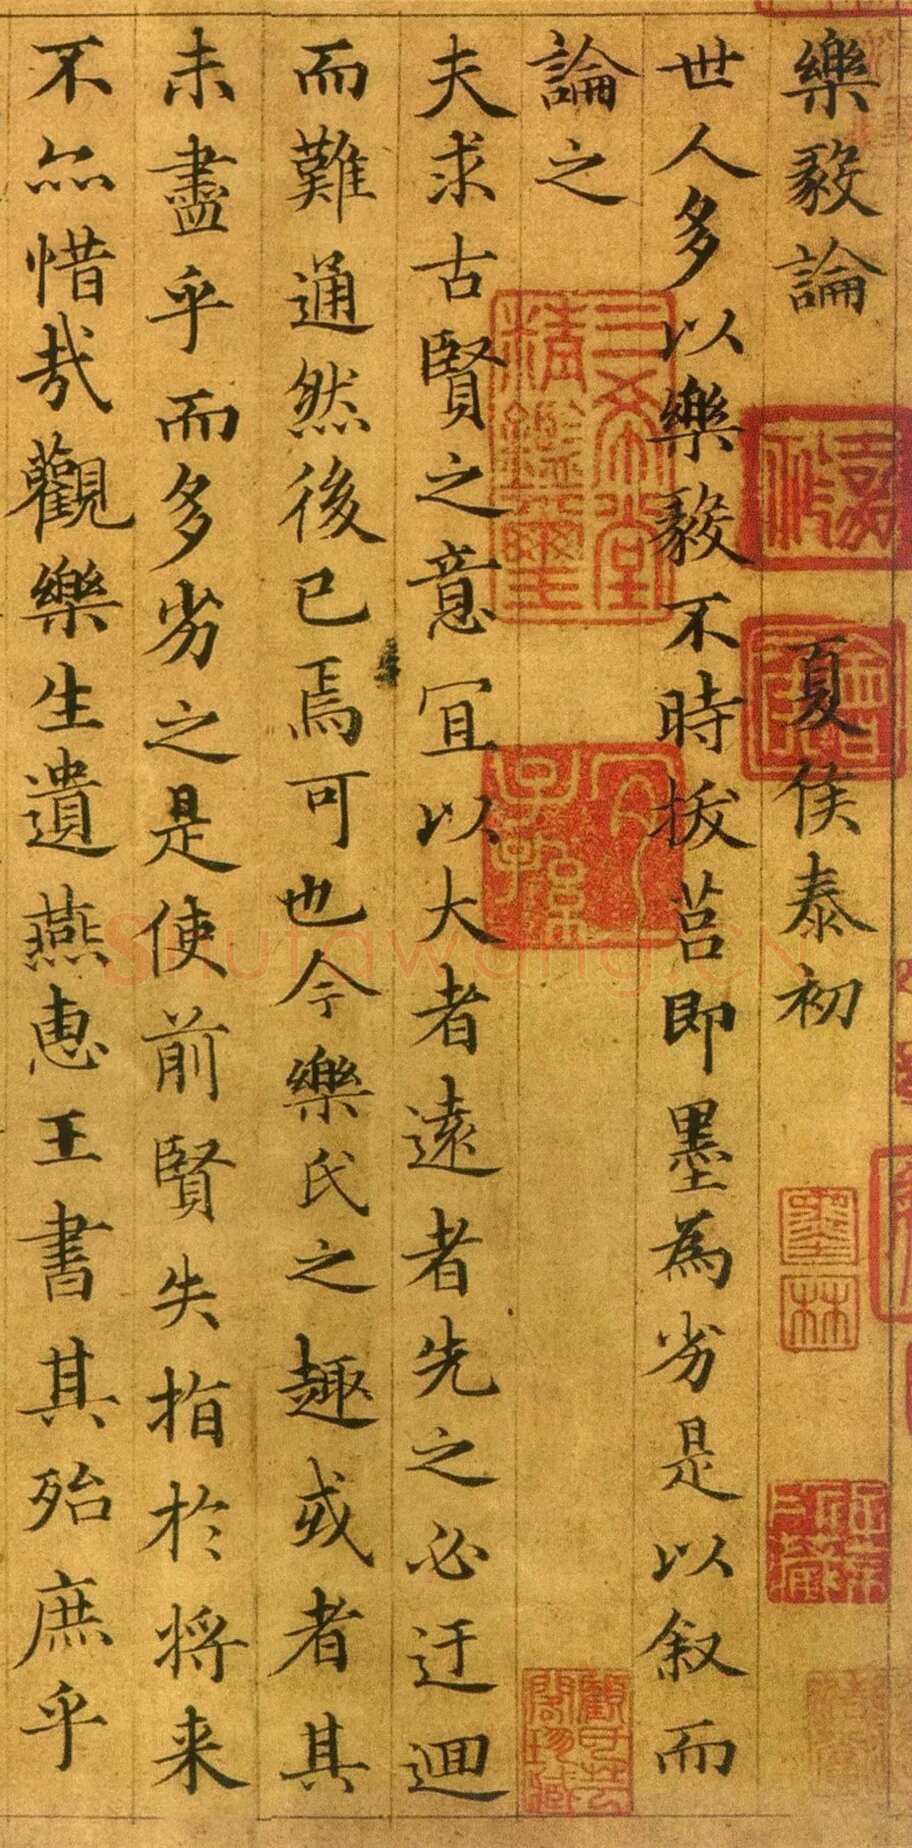 樂毅論 夏侯泰初
世人多以樂毅不時拔莒即墨為劣是以叙而
論之
夫求古賢之意宜以大者遠者先之必迂迴
而難通然後已焉可也今樂氏之趣或者其
未盡乎而多劣之是使前賢失指於將来
不亦惜哉觀樂生遺燕惠王書其殆庶乎
三希堂精鑑璽
宜子孫
墨林
Shufawang.CN